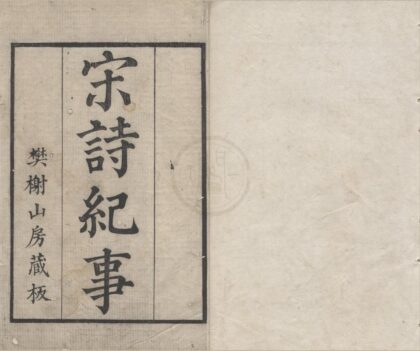 宋詩紀事
樊榭山房藏板